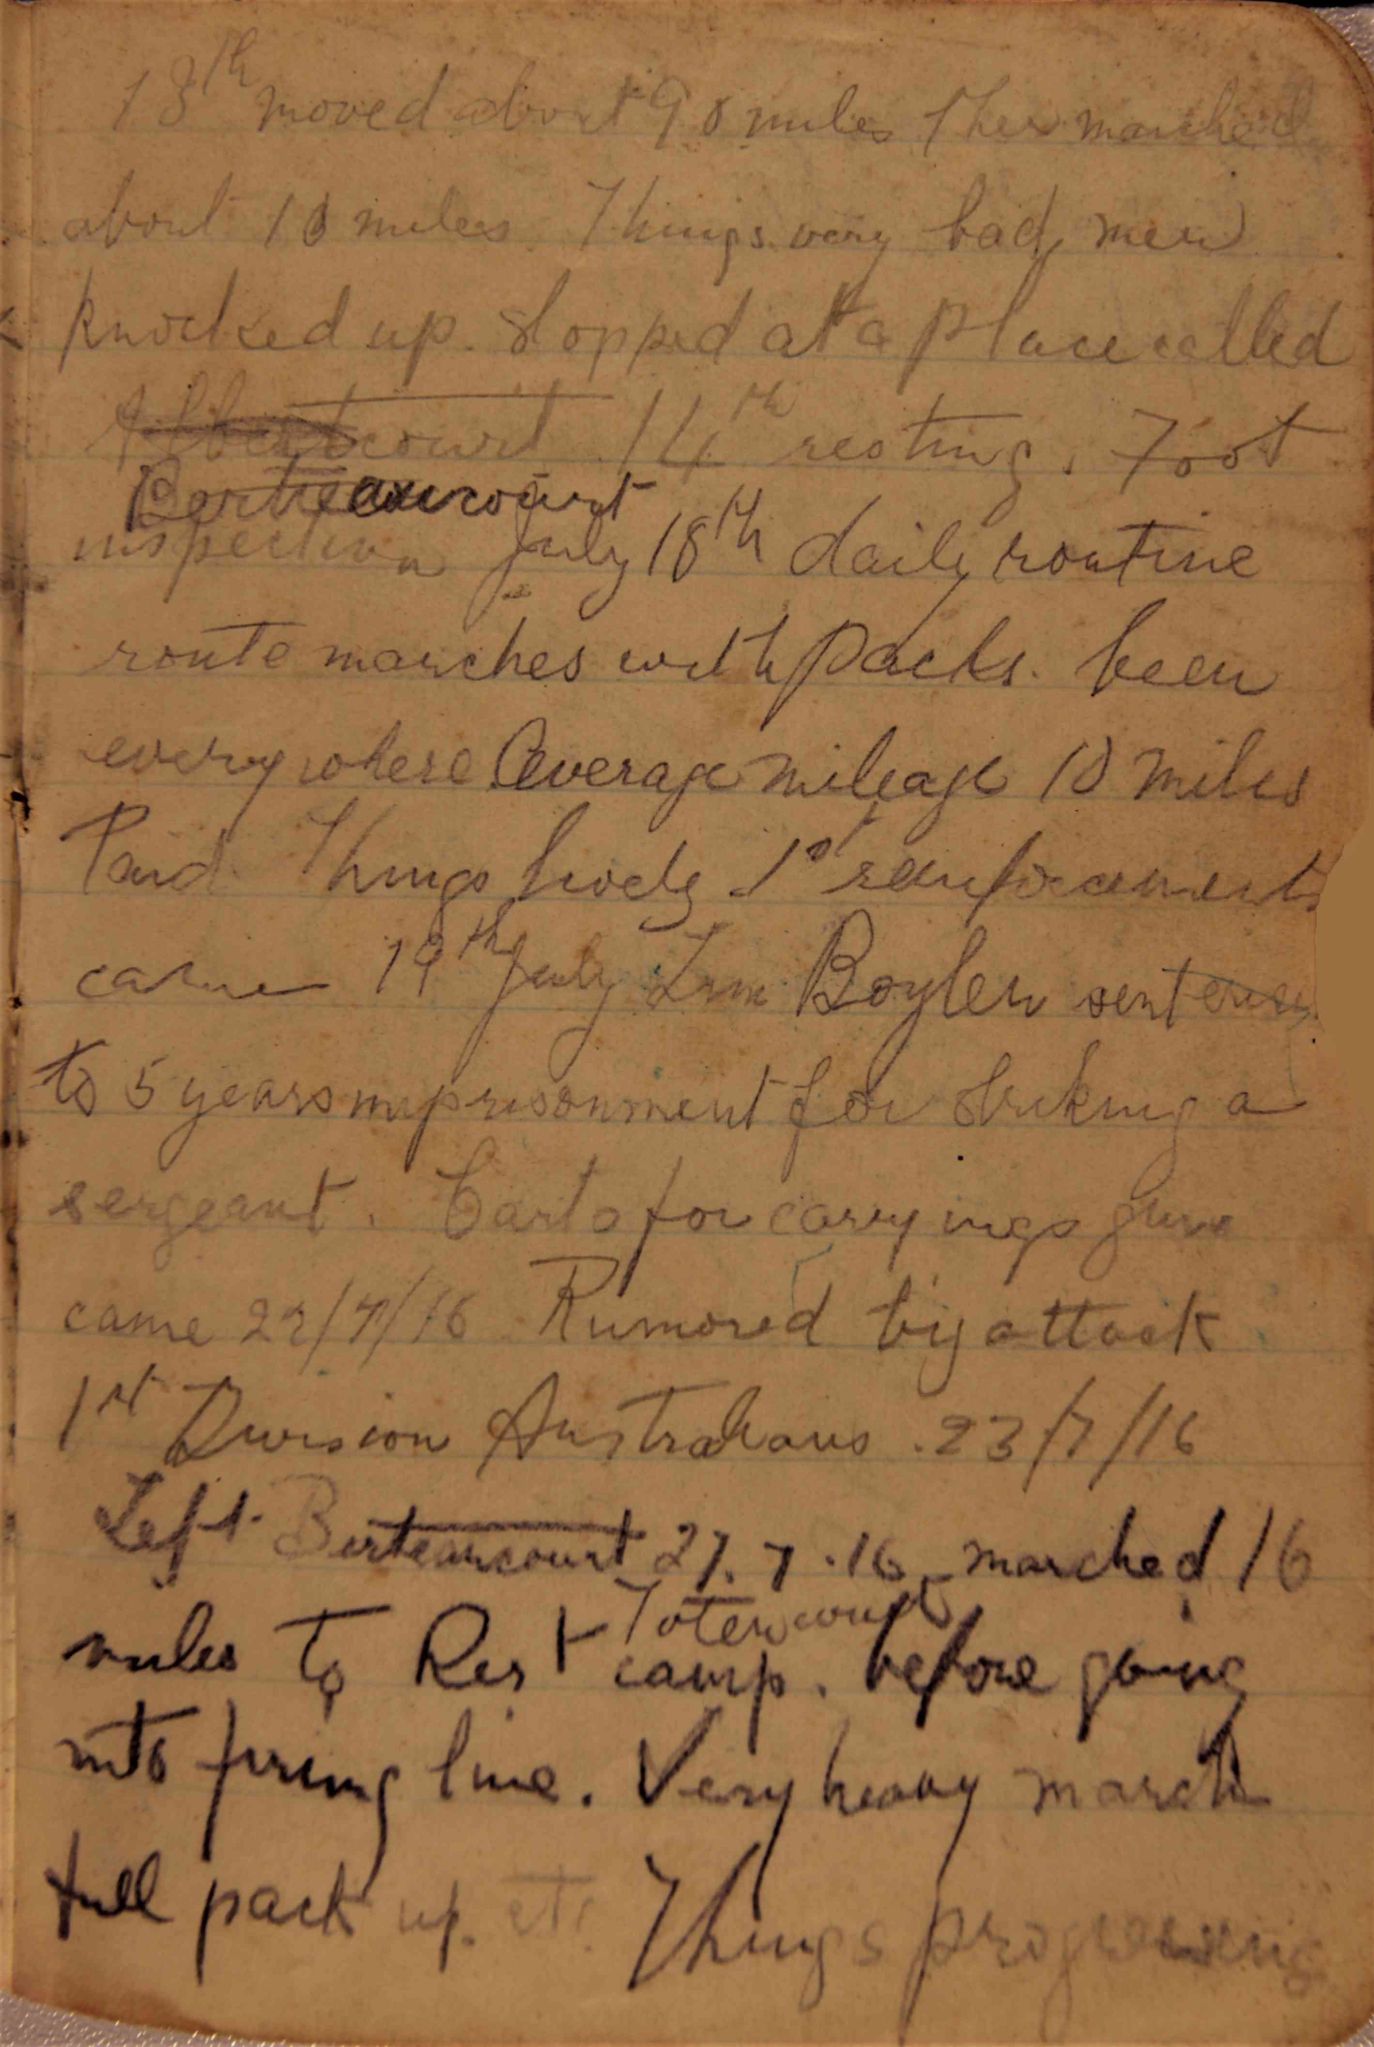 13th moved about 90 miles then marched
about 10 miles. Things very bad, men
knocked up. Stopped at a place called
Albertcourt 14th resting. Foot
Berteaucourt
inspection July 18th daily routine
route marches with packs. been
everywhere Average mileage 10 miles
Paid. Things lively 1st reinforcements
came 19th July Boylen sentenced
to 5 years imprisonment for striking a
sergeant. Carts for carryings guns
came 22/7/16 Rumored big attack
1st Division Australians. 23/7/16
Left Berteaucourt 27.7.16 marched 16
Totencourt
miles to Rest camp. before going
into firing line. Very heavy march
full pack up. etc. Things progressing